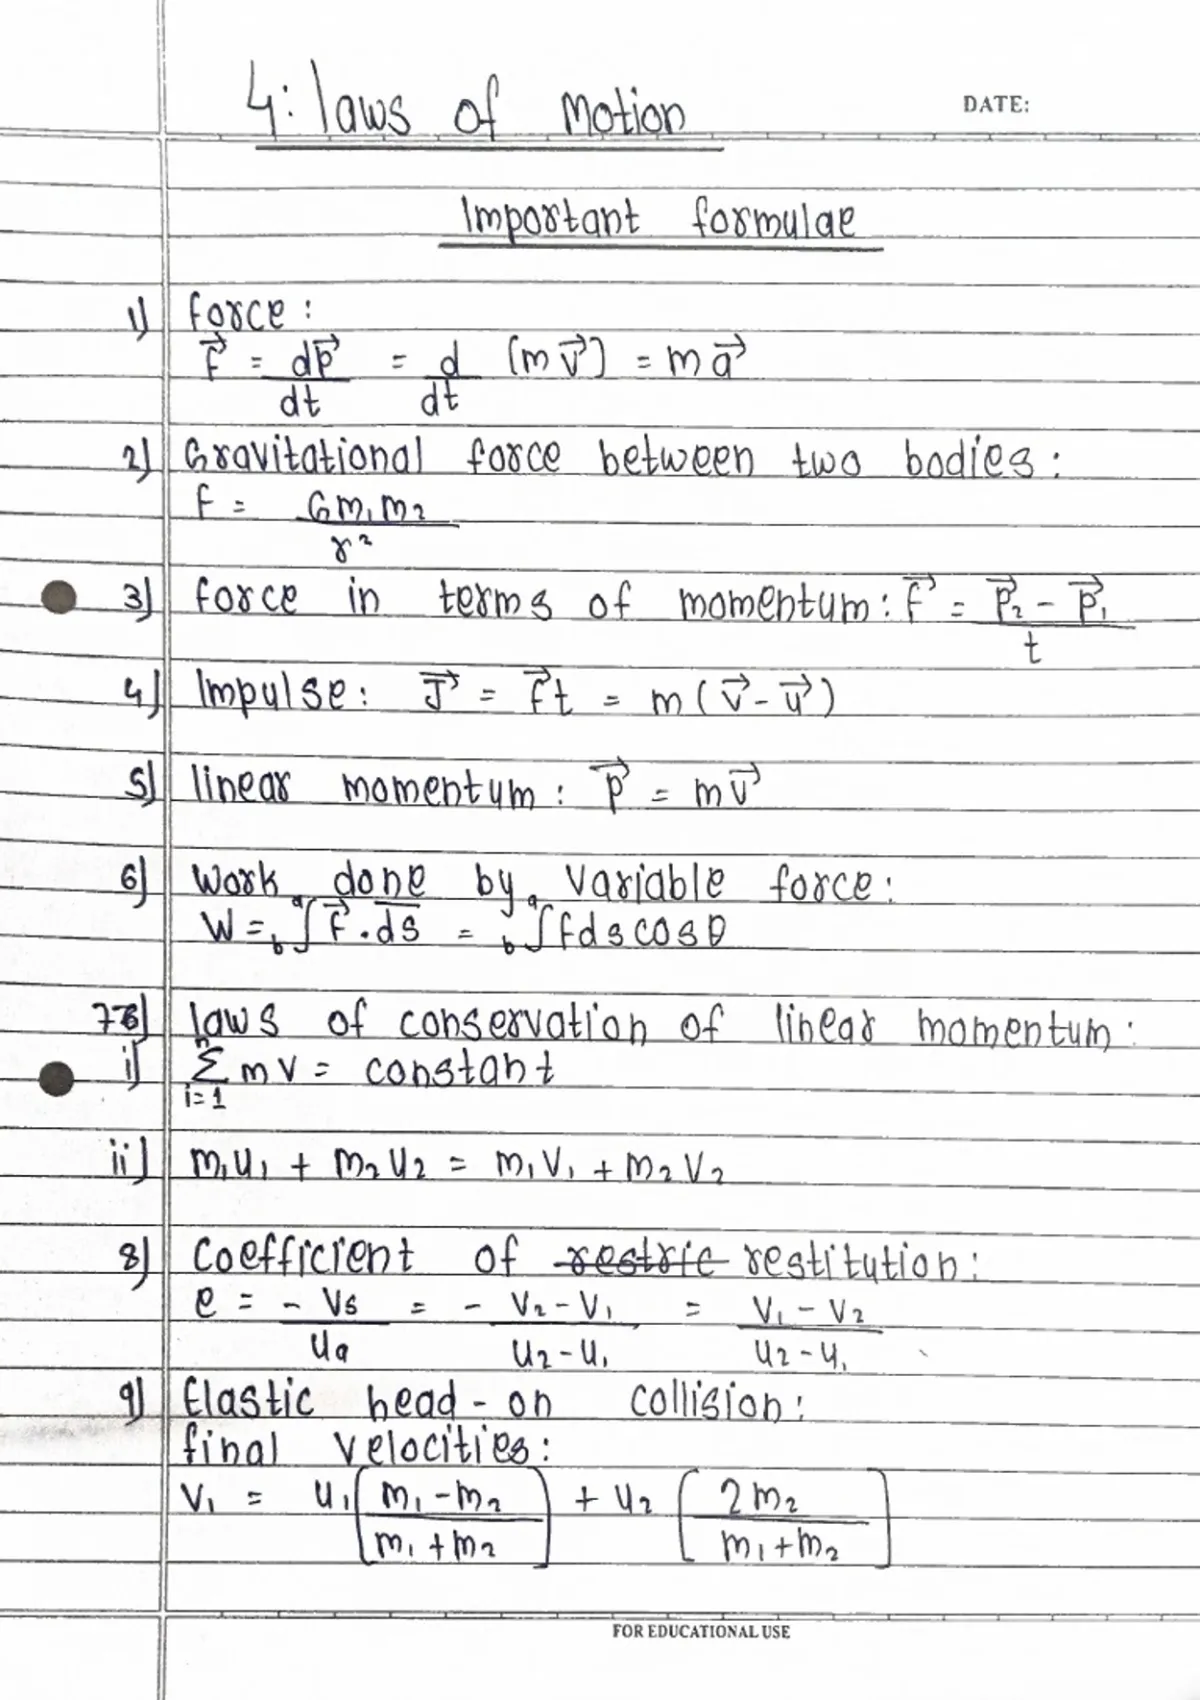 4: laws of Motion
DATE:
Important formulae
1) force :
F⃗ = dp⃗/dt = d/dt (m v⃗) = m a⃗
2) Gravitational force between two bodies :
F = Gm₁m₂/r²
3) force in terms of momentum : F⃗ = (p⃗₂ - p⃗₁)/t
4) Impulse : J⃗ = F⃗t = m ( v⃗ - u⃗ )
5) linear momentum : p⃗ = m v⃗
6) Work done by variable force :
W = b∫a F⃗ . ds = b∫a f ds cos θ
7) laws of conservation of linear momentum :
i) n Σ i=1 m v = constant
ii) m₁u₁ + m₂u₂ = m₁v₁ + m₂v₂
8) Coefficient of restric restitution :
e = - Vs/ua = - (V₂ - V₁)/(u₂ - u₁) = (V₁ - V₂)/(u₂ - u₁)
9) Elastic head - on collision :
final velocities :
V₁ = u₁ [(m₁ - m₂)/(m₁ + m₂)] + u₂ [2m₂/(m₁ + m₂)]
FOR EDUCATIONAL USE